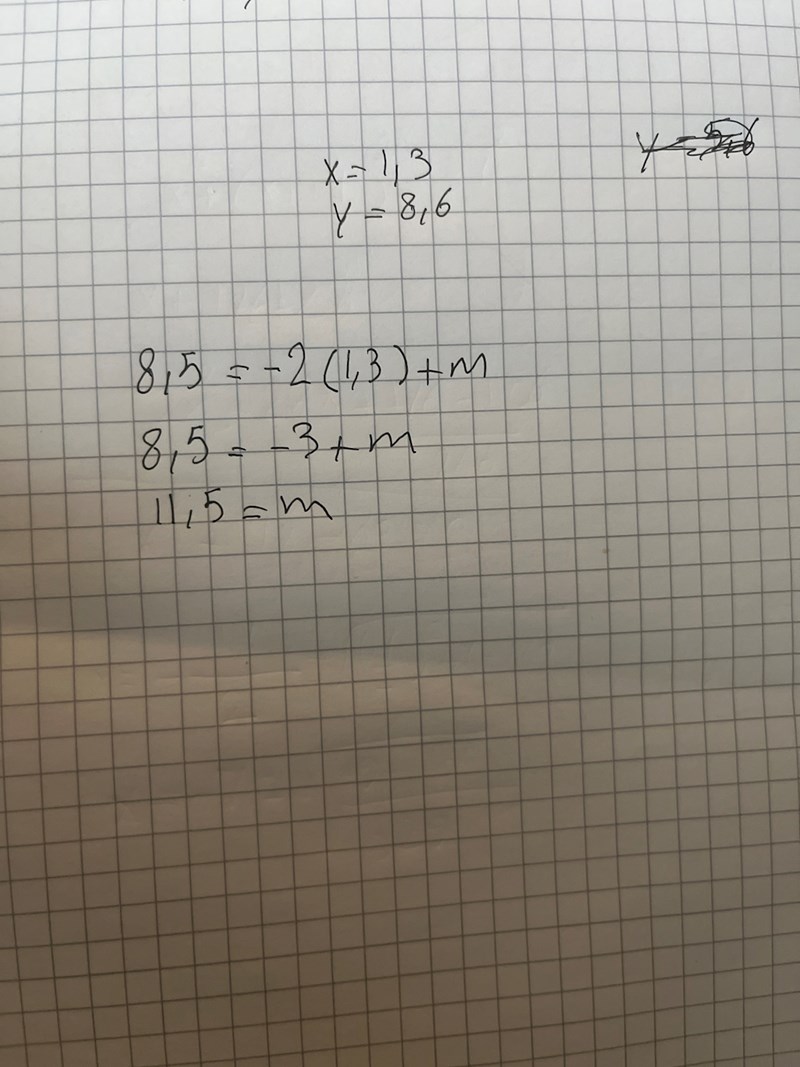 x = 1,3
y = 8,6
8,5 = -2(1,3)+m
8,5 = -3+m
11,5 = m